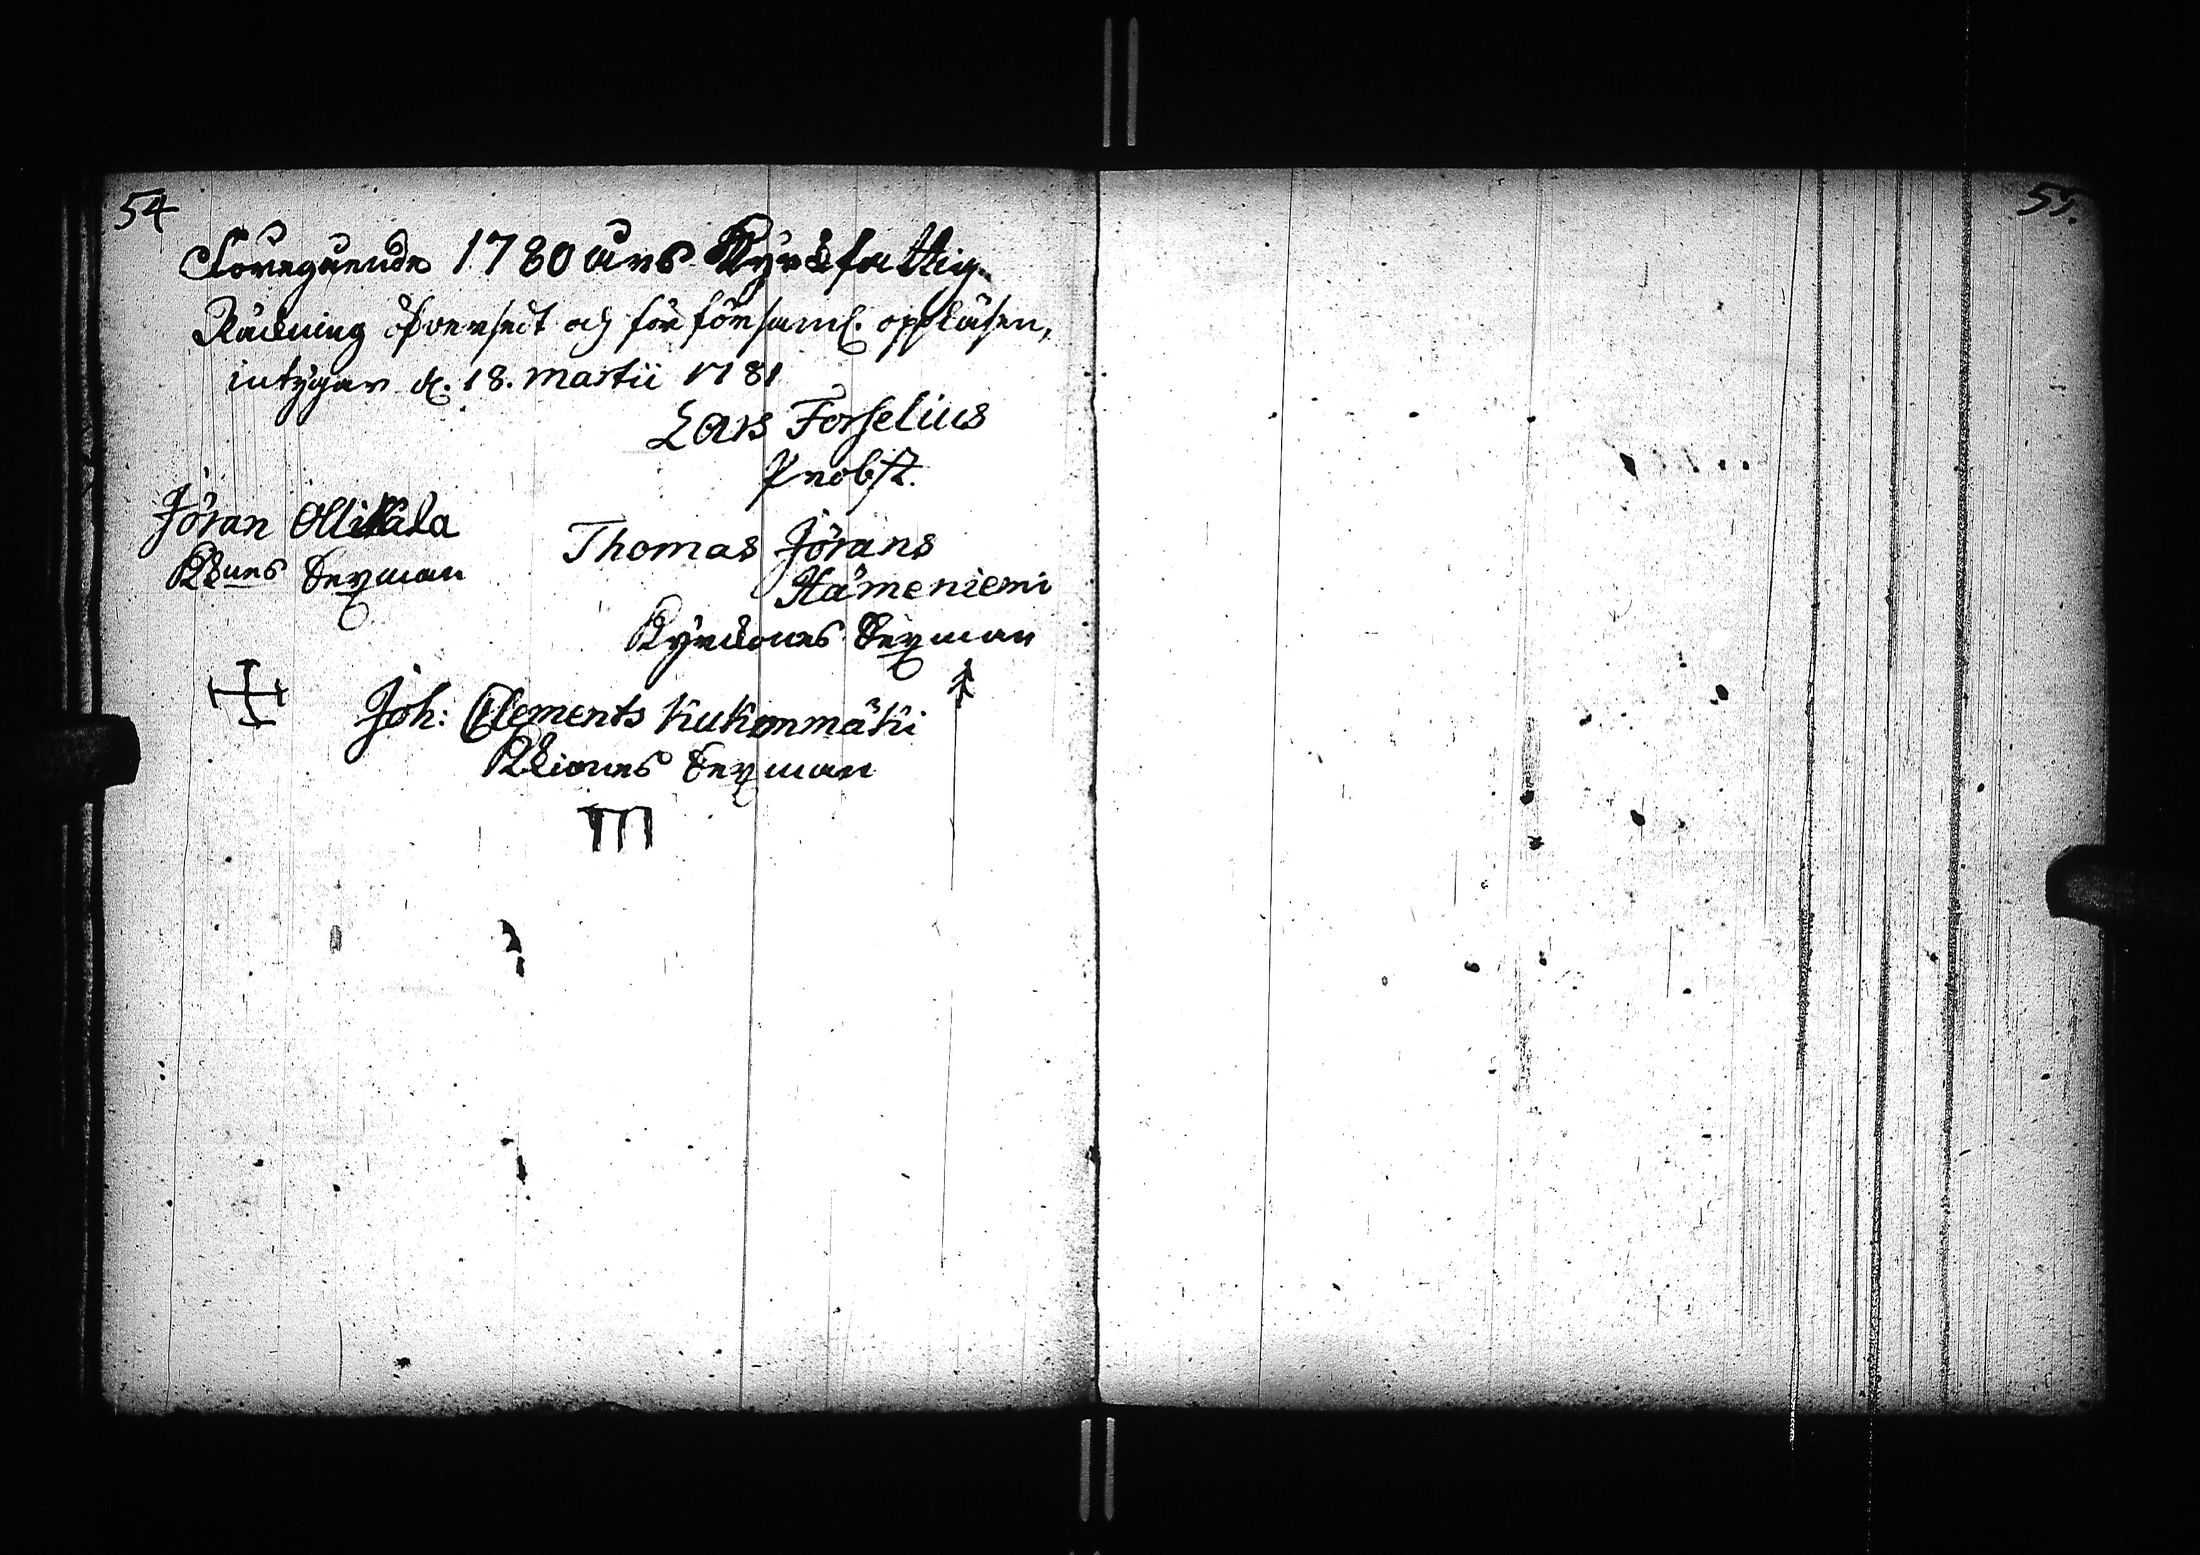 54
Föregående 1780 års Kyrkfattig-
Räkning öfversedt och för församl. oppläsen,
intygar d. 18. Martii 1781
Lars Forselius
Probst.
Jöran Ollikala
Sexman
Thomas Jörans
Hämeniemi
Sexman
Joh: Clements Kukonmäki
Sexman
55.